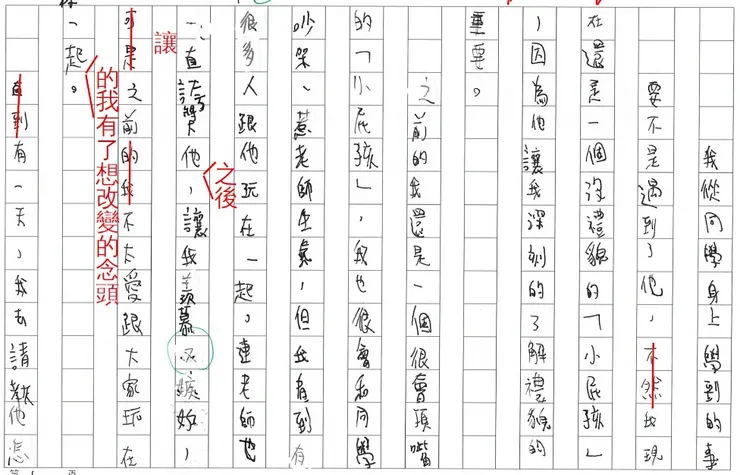 我從同學身上學到的事
要不是遇到了他，不然我現
在還是一個沒禮貌的「小屁孩」
，因為他讓我深刻的了解禮貌的
重要。
之前的我還是一個很會頂嘴
的「小屁孩」，我也很會和同學
吵架、惹老師生氣，但我看到有
很多人跟他玩在一起，連老師也
一直誇讚他，讓我羨慕又嫉妒，
之後
讓
可是之前的我不太愛跟大家玩在
一起。
的我有了想改變的念頭
直到有一天，我去請教他怎